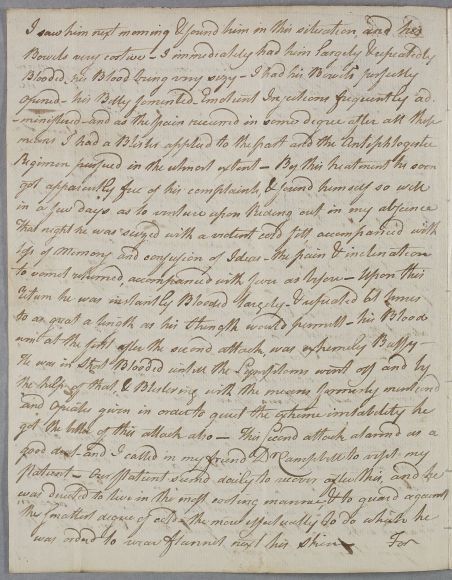 I saw him next morning & found him in this situation, and his
Bowels very costive - I immediately had him largely & repeatedly
Blooded, his Blood being very sizy - I had his Bowels perfectly
opened - his Belly fomented - Emolient Injections frequently ad
-ministered - and as the pain recurred in some degree after all these
means I had a Blister applied to the part and the Antiphlogistic
Regimen pursued in the utmost extent - By this treatment he soon
got apparently free of his complaints, & found himself so well
in a few days as to venture upon Riding out in my absence
That night he was seized with a violent cold fitt accompanied with
loss of Memory and confusion of Ideas - the pain & inclination
to vomit returned, accompanied with fever as before - Upon this
return he was instantly Blooded largely - & repeated at times
to as great a length as his strength would permitt - his Blood
at the first after the second attack, was extremely Buffy -
He was in short Blooded untill the Symptoms went off and by
the help of that & Blistering with the means formerly mentioned
and opiates given in order to quiet the extreme irritability he
got the better of this attack also - This second attack alarmed us a
good deal - and I called in my friend Dr Campbell to visit my
Patient - Our Patient seemed daily to recover after this, and he
was directed to live in the most cooling manner & to guard against
the smallest degree of cold - the more effectually to do which he
was ordered to wear flannel next his skin - For